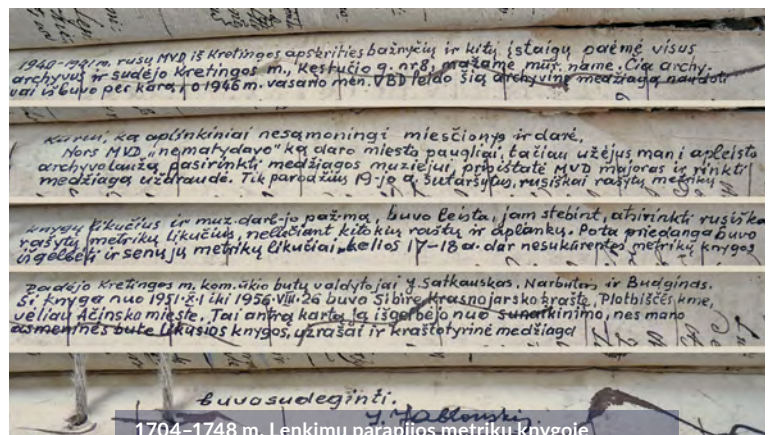 1940-1941 m. rusų MVD iš Kretingos apskrities bažnyčių ir kitų įstaigų paėmė visus
archyvus ir sudėjo Kretingos m., Kęstučio g. nr 8, mažame mūr. name. Čia archy-
vai išbuvo per karą, o 1946 m. vasario mėn. VBD leido šią archyvinę medžiagą naudoti
kūrei, ką aplinkiniai nesąmoningi miesčionys ir darė.
Nors MVD „nematydavo" ką daro miesto paugliai, tačiau užėjus man į apleistą
archyvo laužą pasirinkti medžiagos muziejui, pribistatė MVD majoras ir rinkti
medžiagą uždraudė. Tik parodžius 19-jo a. sutaršytus, rusiškai rašytų metrikų
knygų likučius ir muz. darb-jo paž-mą, buvo leista, jam stebint, atsirinkti rusiškai
rašytų metrikų likučius, neliečiant kitokių raštų ir aplankų. Po ta priedanga buvo
išgelbėti ir senųjų metrikų likučiai, kelios 17-18 a. dar nesukūrentos metrikų knygos
Padėjo Kretingos m. kom. ūkio butų valdytojai J. Satkauskas, Narbutas ir Budginas.
Ši knyga nuo 1951-X-1 iki 1956-VIII-26 buvo Sibire Krasnojarsko krašte, Plotbiščės kme,
vėliau Ačinsko mieste. Tai antrą kartą ją išgelbėjo nuo sunaikinimo, nes mano
asmeninės bute likusios knygos, užrašai ir kraštotyrinė medžiaga
buvo sudeginti.
J. Jablonskis
1704–1748 m. Lenkimų parapijos metrikų knygoje